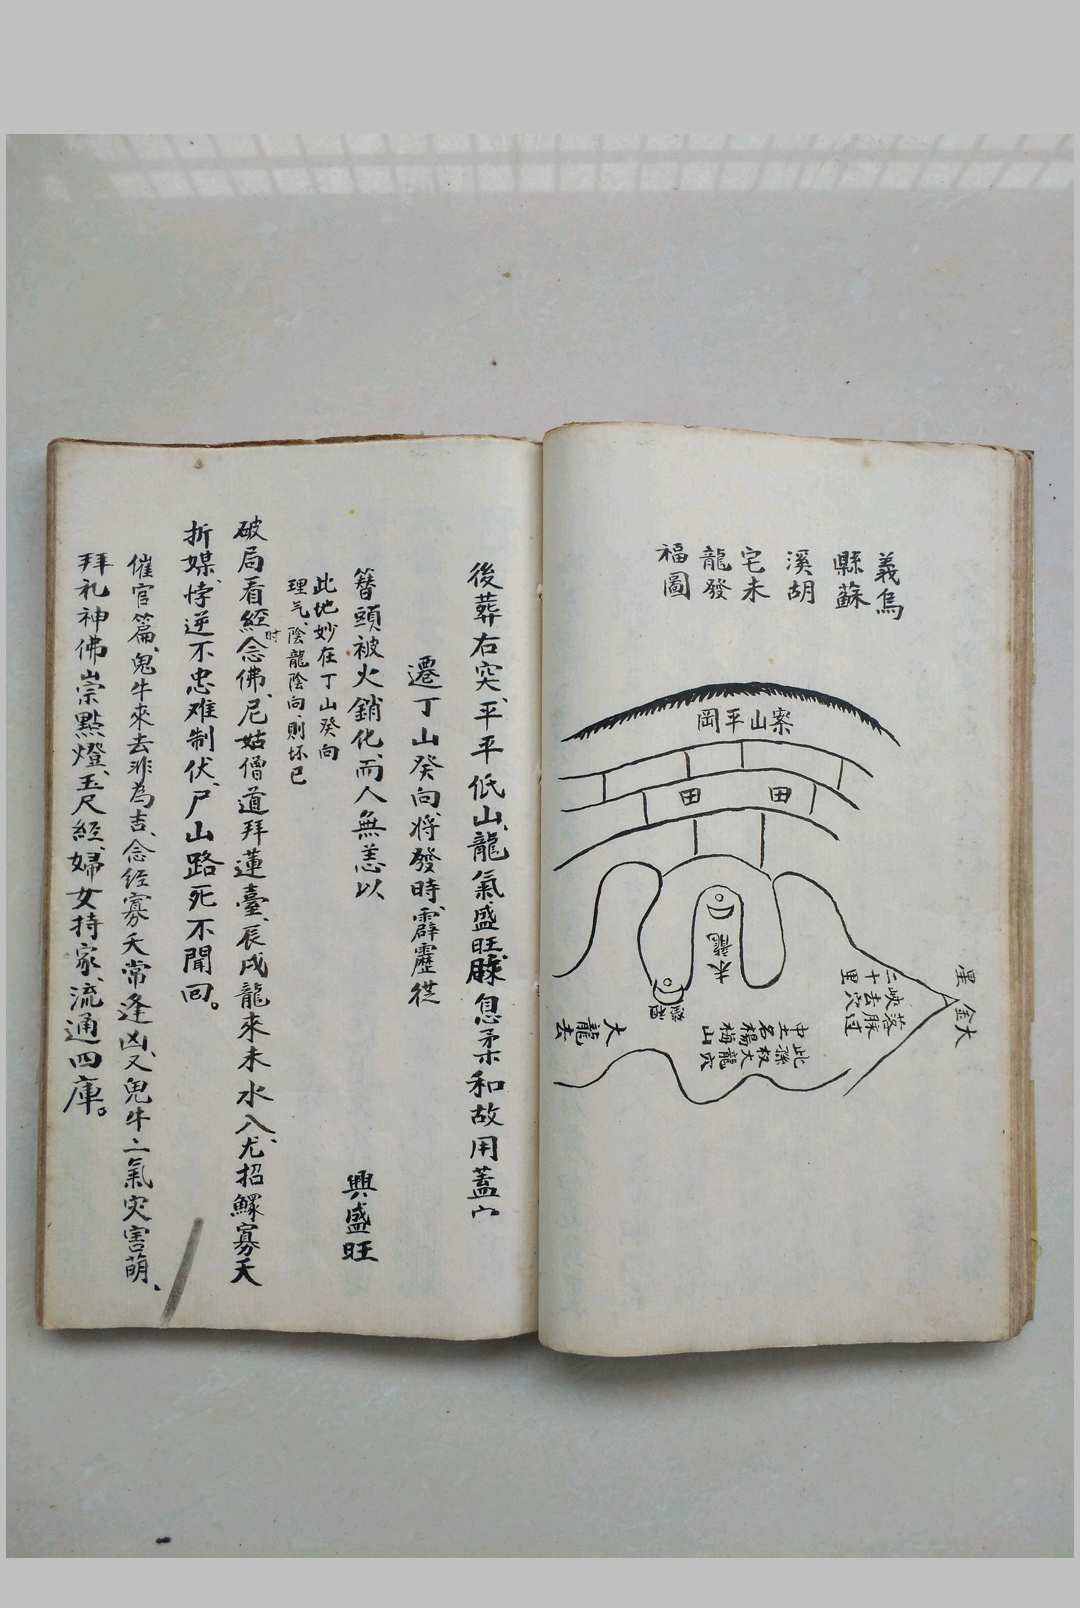 義烏
縣蘇
溪胡
宅未
龍發
福圖
案山平岡
田
田
未龍
大金
星
落脉過
峽去穴
二十里
此龍穴
孫大山
权梅
楊
名
中土
大龍去
後葬右突、平平低山、龍氣盛旺、脉息柔和故用蓋穴
遷丁山癸向、将發時、霹靂從
簪頭被火銷化、而人無恙以
興盛旺
此地妙在丁山癸向
理气、陰龍陰向、則坏已
破局看經念佛、尼姑僧道拜蓮臺、辰戌龍來未水入、尤招鰥寡夭
时
折媒、悖逆不忠难制伏、尸山路死不聞回。
催官篇、鬼牛來去非為吉、念經寡夭常逢凶、又鬼牛二氣灾害萌、
拜礼神佛崇點燈、玉尺經、婦女持家、流通四庫。